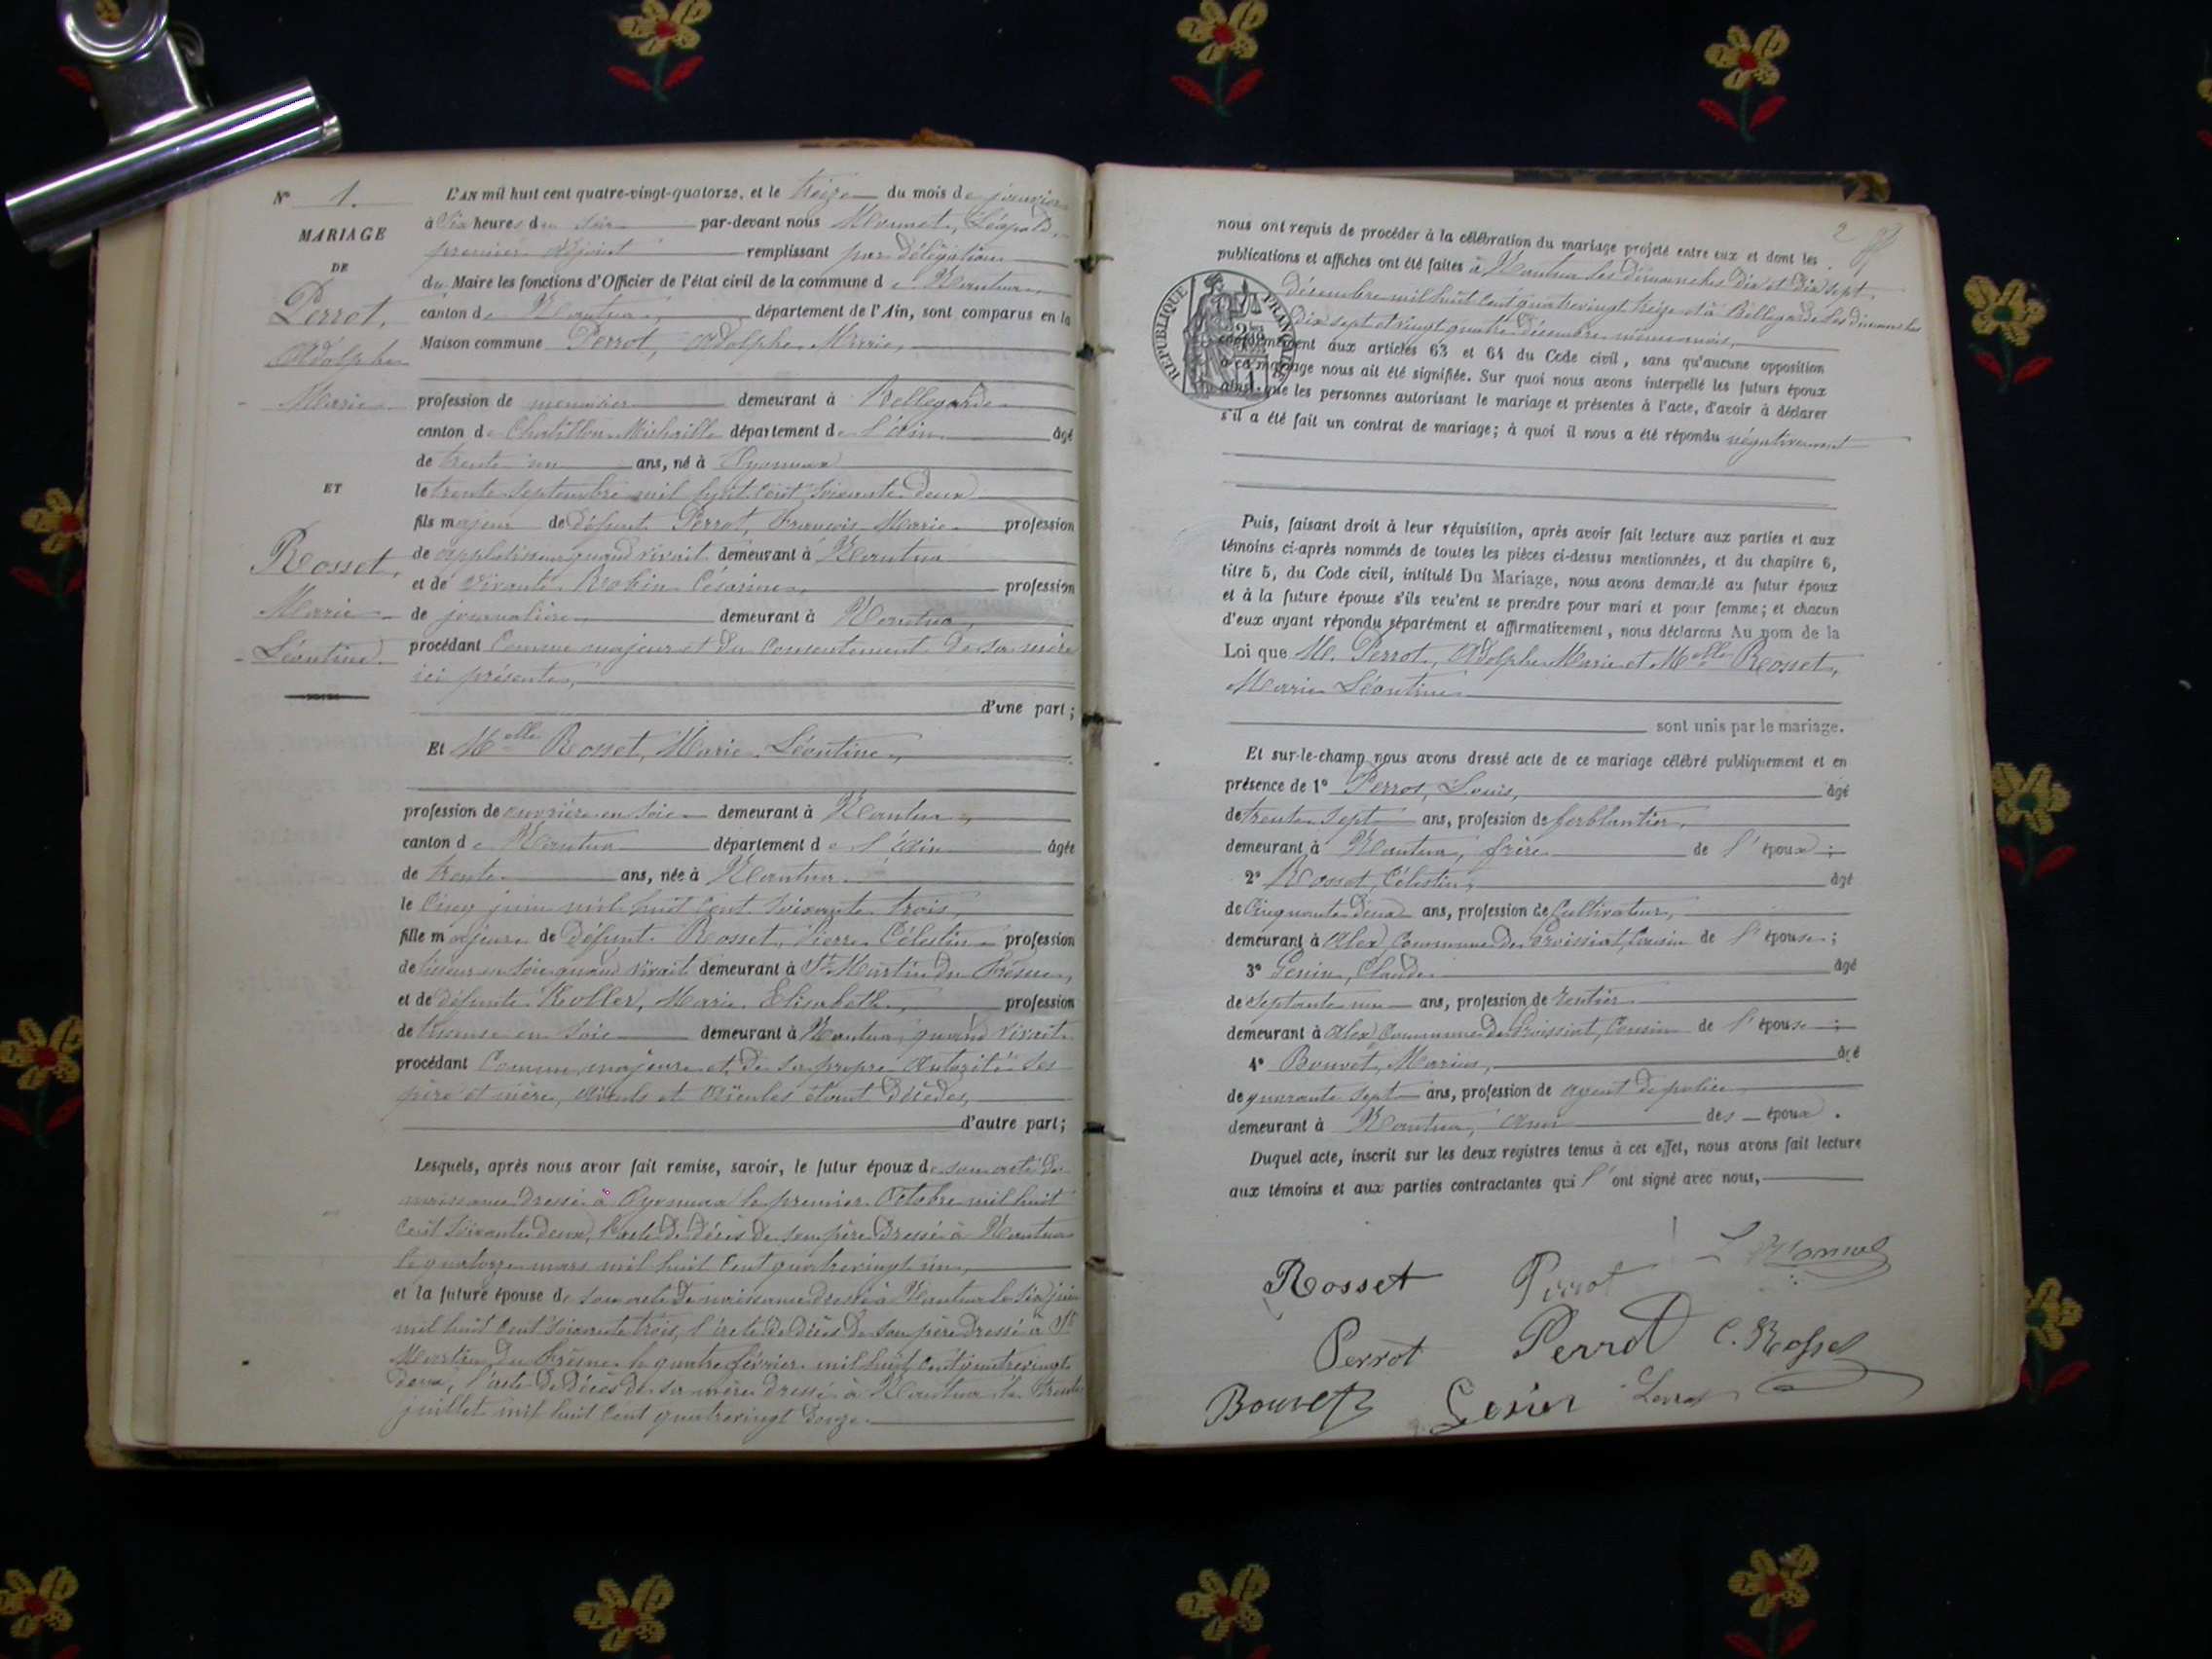 N° 1.
MARIAGE
DE
Perrot,
Adolphe
Marie
ET
Rosset,
Marie
Léontine
L'AN mil huit cent quatre-vingt-quatorze, et le treize du mois de janvier
à six heures du soir par-devant nous Léopold,
premier adjoint remplissant par délégation
du Maire les fonctions d'Officier de l'état civil de la commune de Nantua,
canton de Nantua, département de l'Ain, sont comparus en la
Maison commune Perrot, Adolphe Marie,
profession de menuisier demeurant à Bellegarde
canton de Chatillon-Michaille département de l'Ain âgé
de trente un ans, né à Oyonnax
le trente septembre mil huit cent soixante deux
fils majeur de défunt Perrot, François Marie profession
de quand vivait demeurant à Nantua
et de vivante Césarine, profession
de journalière, demeurant à Nantua,
procédant comme majeur et du consentement de sa mère
ici présente,
d'une part;
Et Melle Rosset, Marie Léontine,
profession de ouvrière en soie demeurant à Nantua,
canton de Nantua département de l'Ain âgée
de trente ans, née à Nantua
le cinq juin mil huit cent soixante trois,
fille majeure de défunt Rosset, Pierre Célestin profession
de tisseur en soie quand vivait demeurant à St Martin du Fresne,
et de défunte Koller, Marie Elisabeth, profession
de tisseuse en soie demeurant à Nantua, quand vivait
procédant comme majeure et de sa propre autorité ses
père et mère, aïeuls et aïeules étant décédés,
d'autre part;
Lesquels, après nous avoir fait remise, savoir, le futur époux de son acte de
naissance dressé à Oyonnax le premier octobre mil huit
cent soixante deux, l'acte de décès de son père dressé à Nantua
le quatorze mars mil huit cent quatrevingt un,
et la future épouse de son acte de naissance dressé à Nantua le six juin
mil huit cent soixante trois, l'acte de décès de son père dressé à St
Martin du Fresne le quatre février mil huit cent quatrevingt
deux, l'acte de décès de sa mère dressé à Nantua le trente
juillet mil huit cent quatrevingt douze.
2
nous ont requis de procéder à la célébration du mariage projeté entre eux et dont les
publications et affiches ont été faites à Nantua les dimanches dix et dix sept
décembre mil huit cent quatrevingt treize et à Bellegarde les dimanches
dix sept et vingt quatre décembre même mois,
RÉPUBLIQUE FRANÇAISE
conformément aux articles 63 et 64 du Code civil, sans qu'aucune opposition
à ce mariage nous ait été signifiée. Sur quoi nous avons interpellé les futurs époux
ainsi que les personnes autorisant le mariage et présentes à l'acte, d'avoir à déclarer
s'il a été fait un contrat de mariage; à quoi il nous a été répondu négativement
Puis, faisant droit à leur réquisition, après avoir fait lecture aux parties et aux
témoins ci-après nommés de toutes les pièces ci-dessus mentionnées, et du chapitre 6,
titre 5, du Code civil, intitulé Du Mariage, nous avons demandé au futur époux
et à la future épouse s'ils veulent se prendre pour mari et pour femme; et chacun
d'eux ayant répondu séparément et affirmativement, nous déclarons Au nom de la
Loi que M. Perrot, Adolphe Marie et Melle Rosset,
Marie Léontine
sont unis par le mariage.
Et sur-le-champ nous avons dressé acte de ce mariage célébré publiquement et en
présence de 1° Perrot, Louis, âgé
de trente sept ans, profession de ferblantier,
demeurant à Nantua, frère de l'époux;
2° Rosset, Célestin, âgé
de cinquante deux ans, profession de cultivateur,
demeurant à Alex commune de Groissiat, cousin de l'épouse;
3° Genin, Claude âgé
de septante un ans, profession de rentier
demeurant à Alex commune de Groissiat, cousin de l'épouse;
4° Bouvet, Marius, âgé
de quarante sept ans, profession de agent de police
demeurant à Nantua, ami des époux.
Duquel acte, inscrit sur les deux registres tenus à cet effet, nous avons fait lecture
aux témoins et aux parties contractantes qui l'ont signé avec nous,
Rosset Perrot
Perrot Perrot C. Rosset
Bouvet Genin